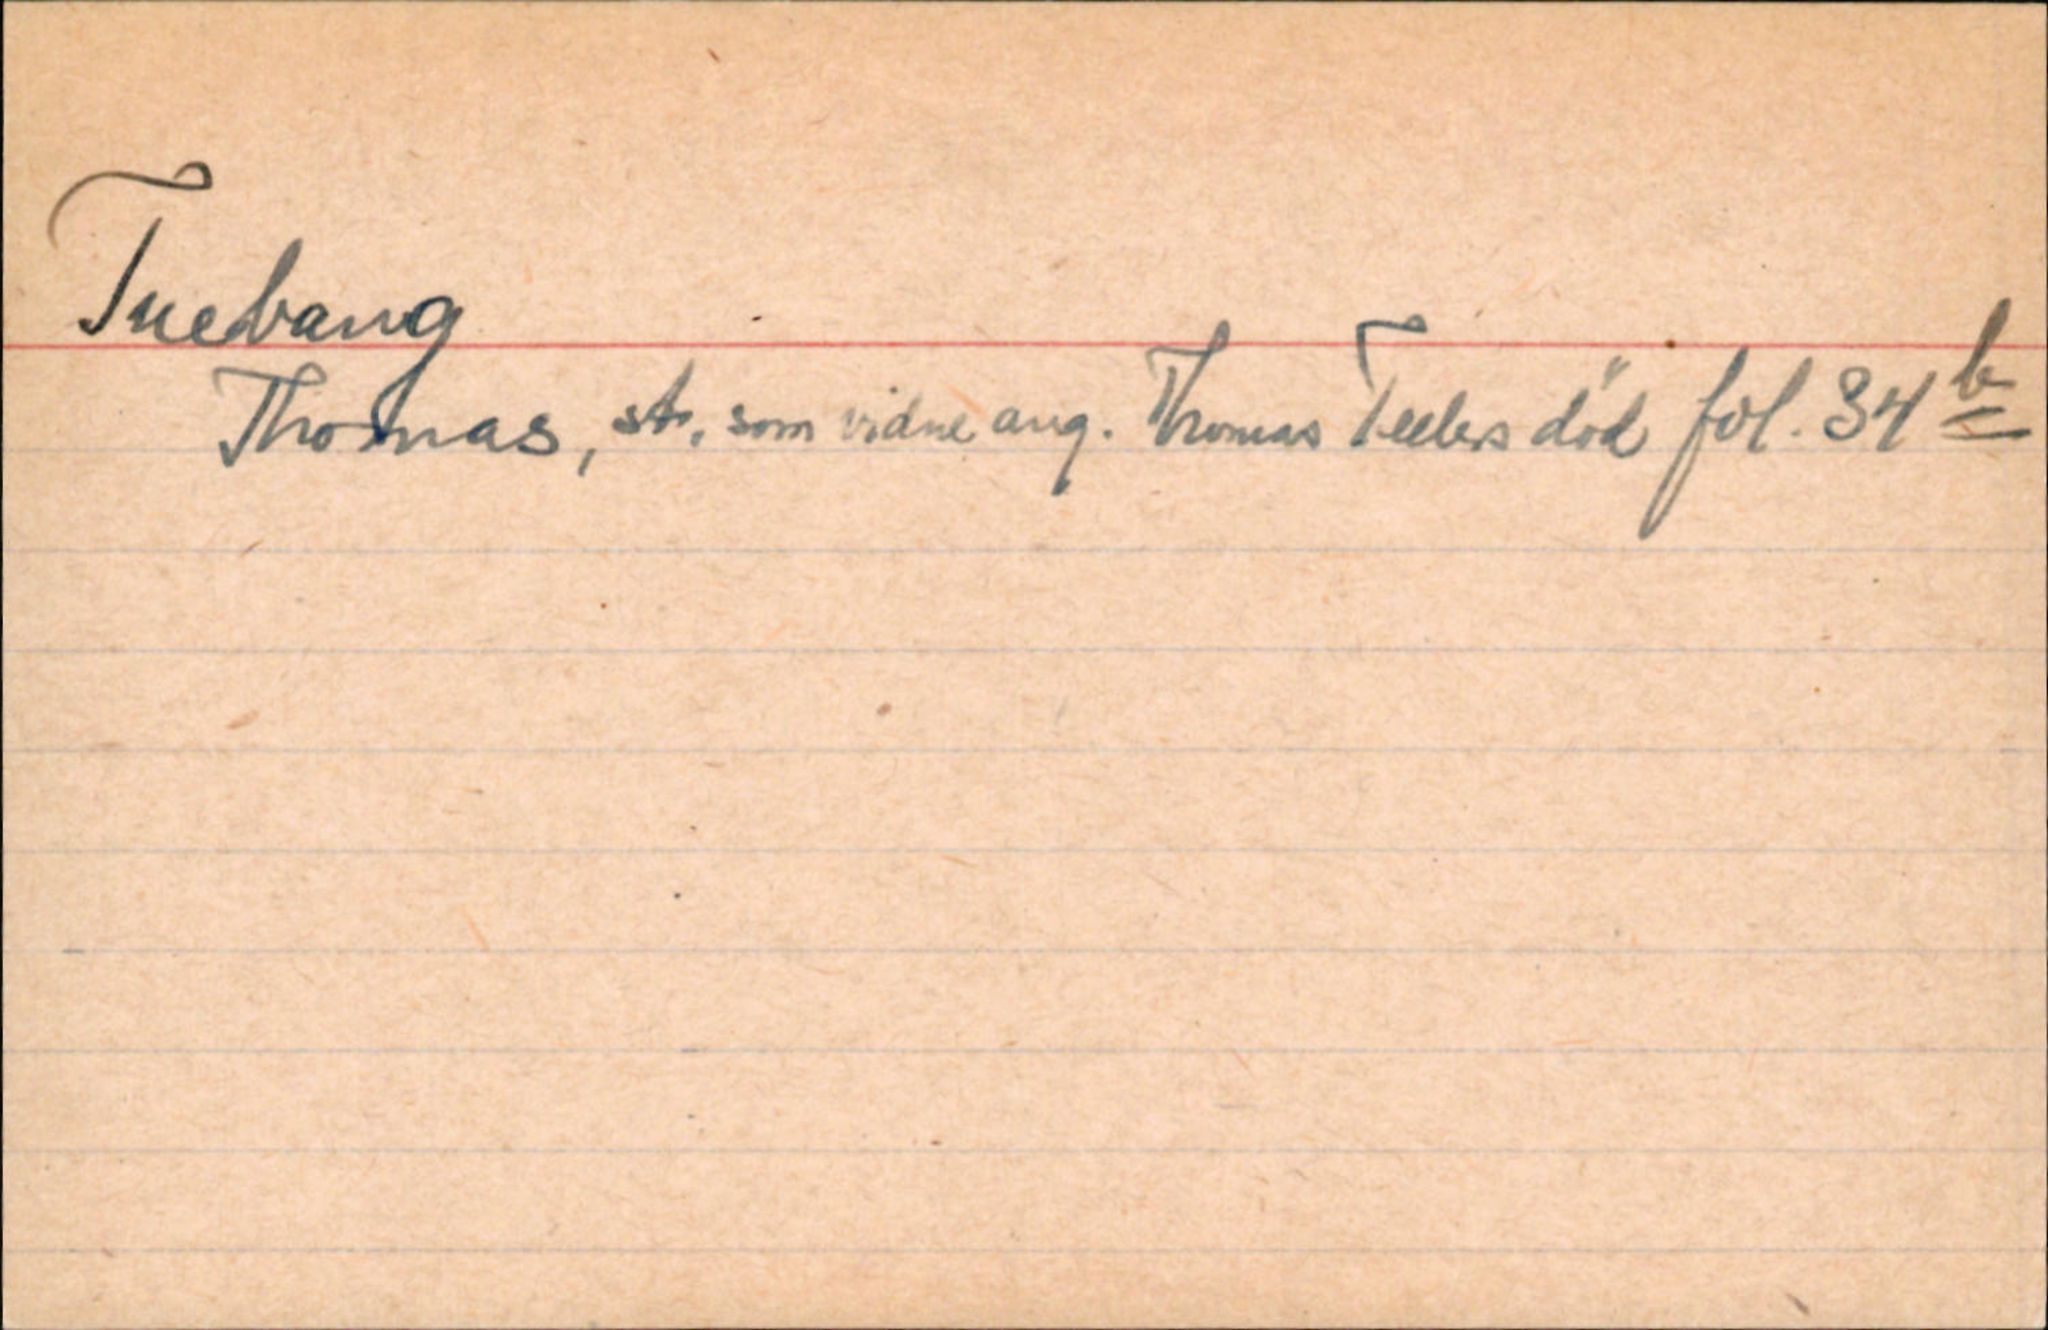 Tuebang
Thomas, st. som vidne ang. Thomas død fol. 34 b